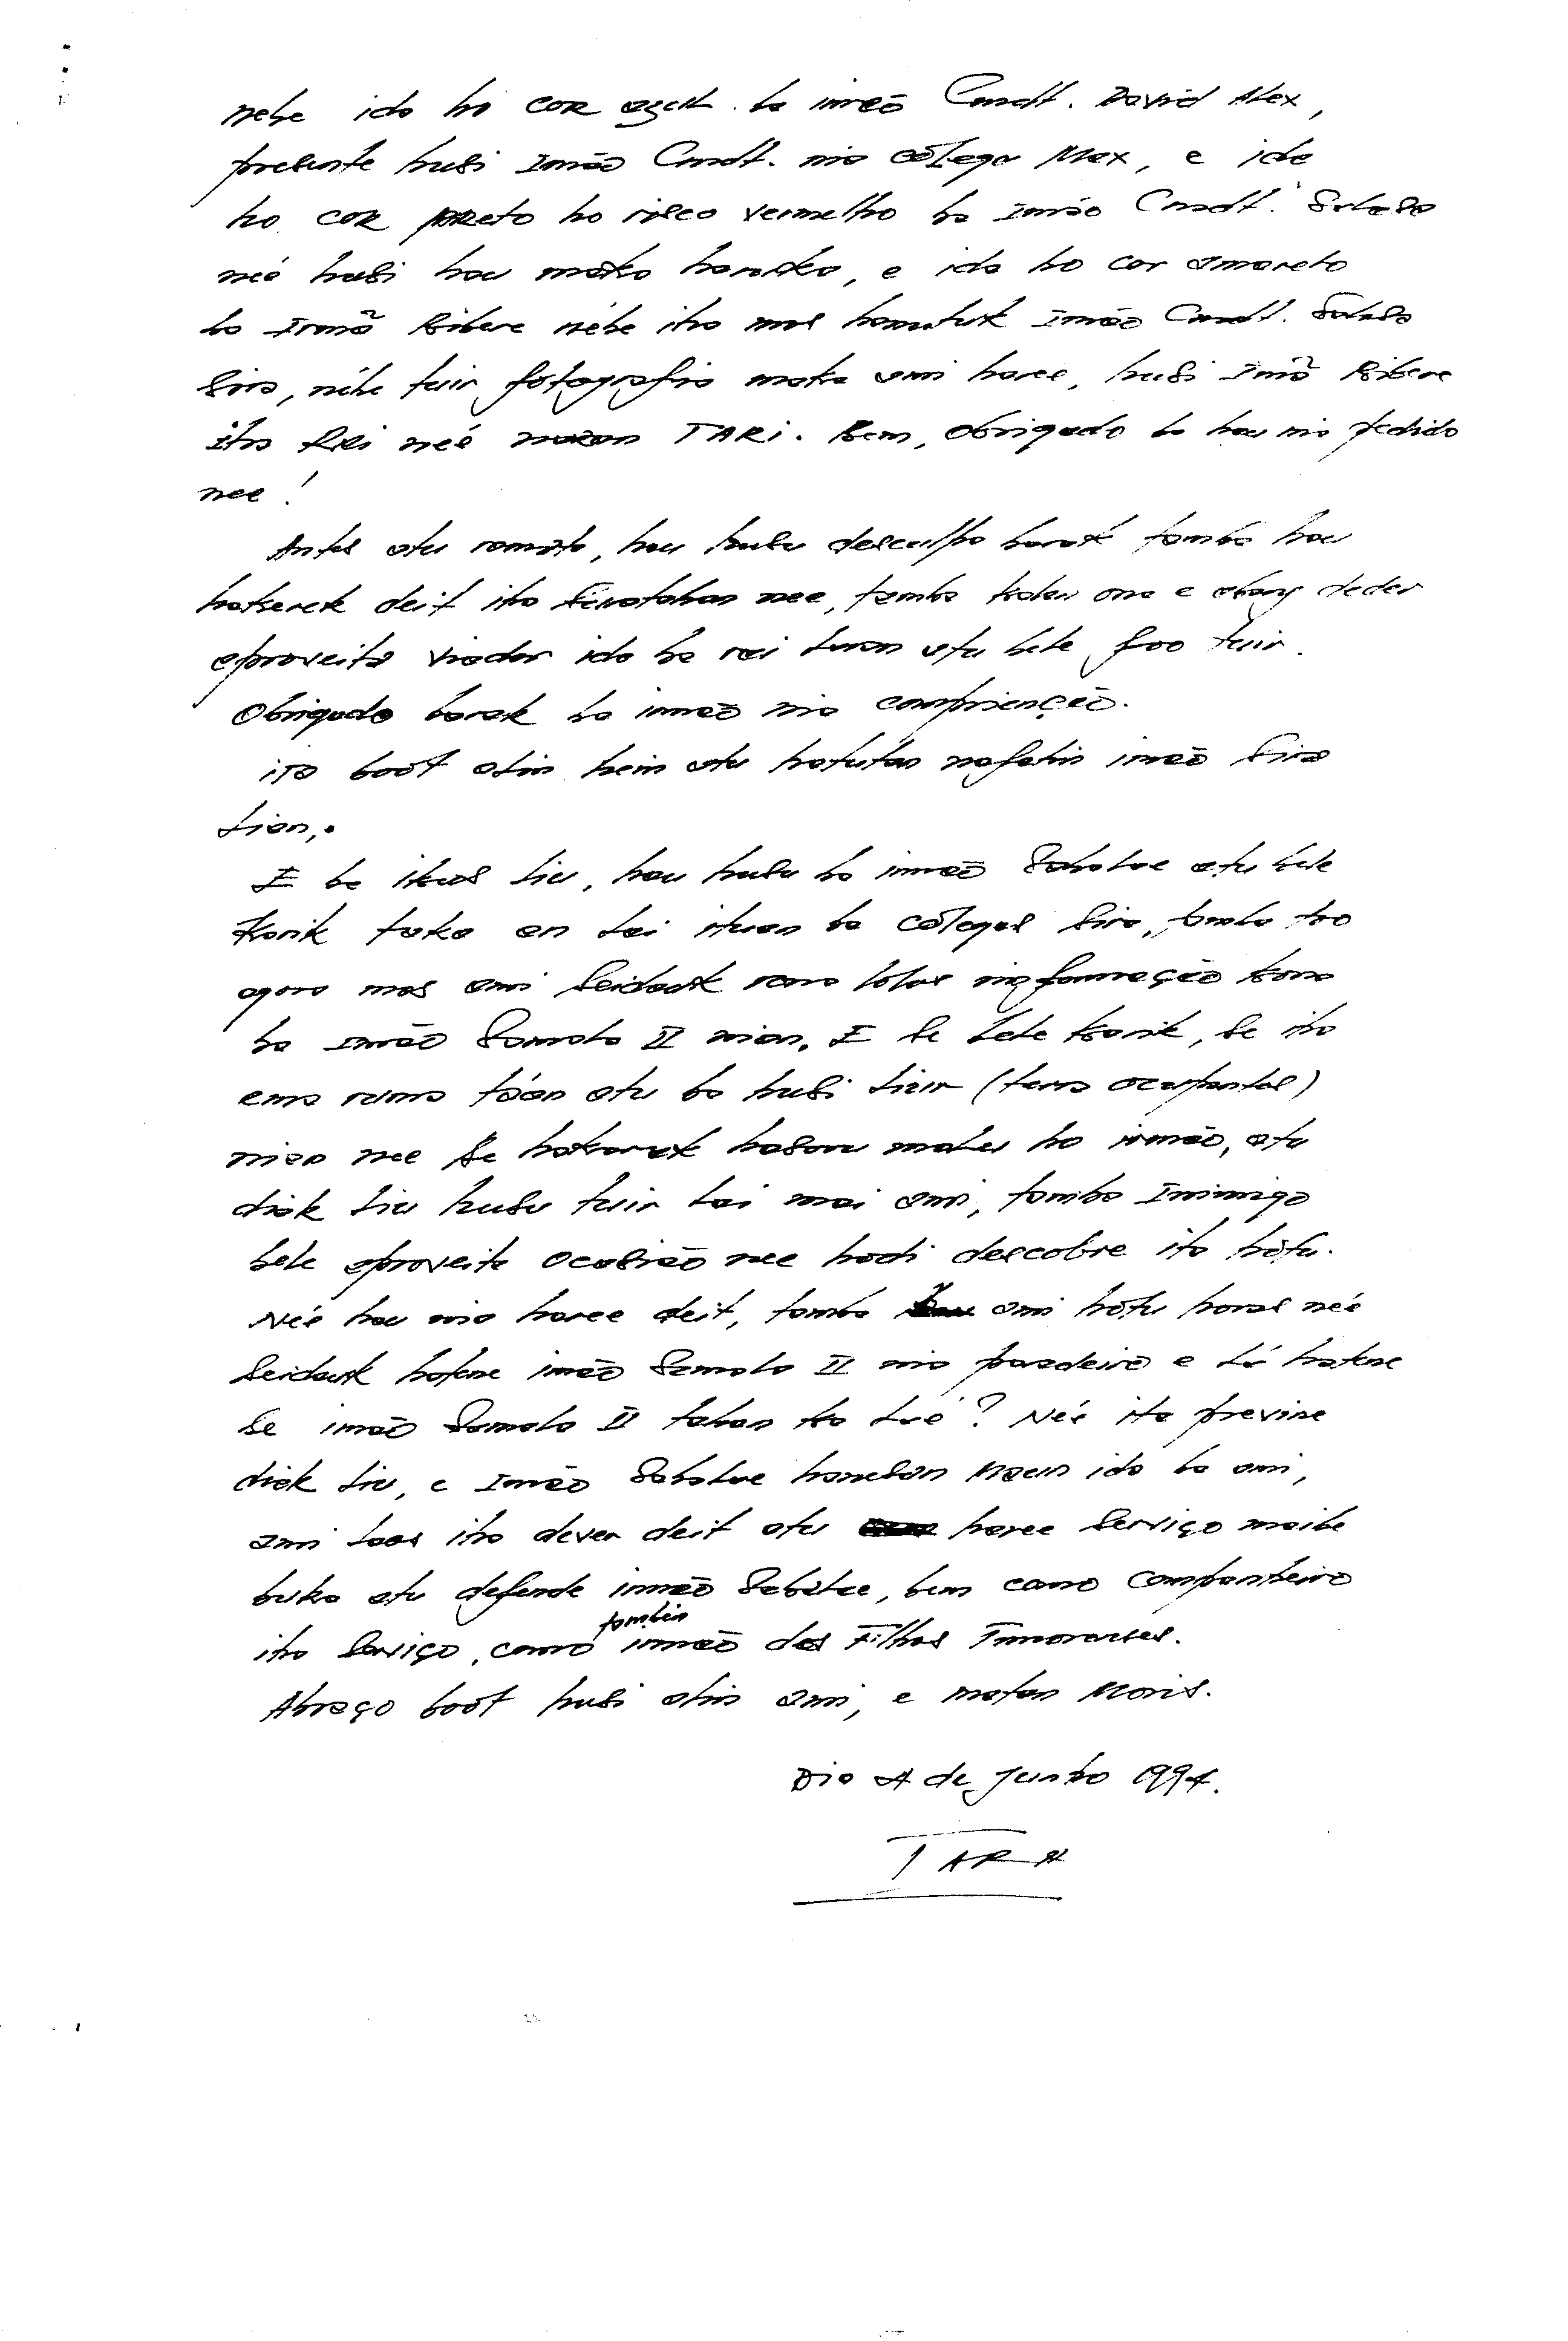 nebe ida ho cor azul ba irmão Cmdt. David Alex,
presente husi Irmão Cmdt. nia cólega Max, e ida
ho cor preto ho risco vermelho ba Irmão Cmdt. Sabaso
neé husi hau maka haruka, e ida ho cor amareto
ba Irmã Bibere nébe iha mos hamutuk Irmão Cmdt. Sabaso
sira, nébe tuir fotografia maka ami haree, husi Irmã Bibere
iha Rei neé naran TARI. Bem, Obrigado ba hau nia pedido
nee!
Antes atu ramata, hau husu desculpa barak tamba hau
hakerek deit iha surotahan nee, tamba kalan ona e abany deder
aproveita viador ida ba rai Luron atu bele foo tuir.
Obrigado barak ba irmão nia comprienção.
ita boot alin hein atu hatutan nafatin irmão sira
lian,.
E ba ikus liu, hau husu ba irmão Sabalae atu bele
Karik taka an lai ituan ba cólegas sira, tamba too
agora mos ami seidauk rona lolos informação kona
ba Irmão Somoto II nian. E se bele karik, se iha
ema ruma tóan atu ba husi liur (terra ocupantes)
nian nee se hakarak hasoru malu ho irmão, atu
diak liu husu tuir lai mai ami, tamba Inimigo
bele aproveita ocasião nee hodi descobre ita hotu.
Neé hau nia haree deit, tamba ami hotu horas neé
seidauk hatene irmão Somoto II nia paradeiro e lá hatene
se irmão Somoto II tahan ka lae? Neé ita previne
diak liu, e Irmão Sabalae hanesan Maun ida ba ami,
ami laos iha dever deit atu haree serviço maibe
buka atu defende irmão Sabalae, bem como companheiro
iha serviço, como também irmão dos Filhos Timorenses.
Abraço boot husi alin ami, e matan Moris.
Dia 4 de Junho 1994.
TARA